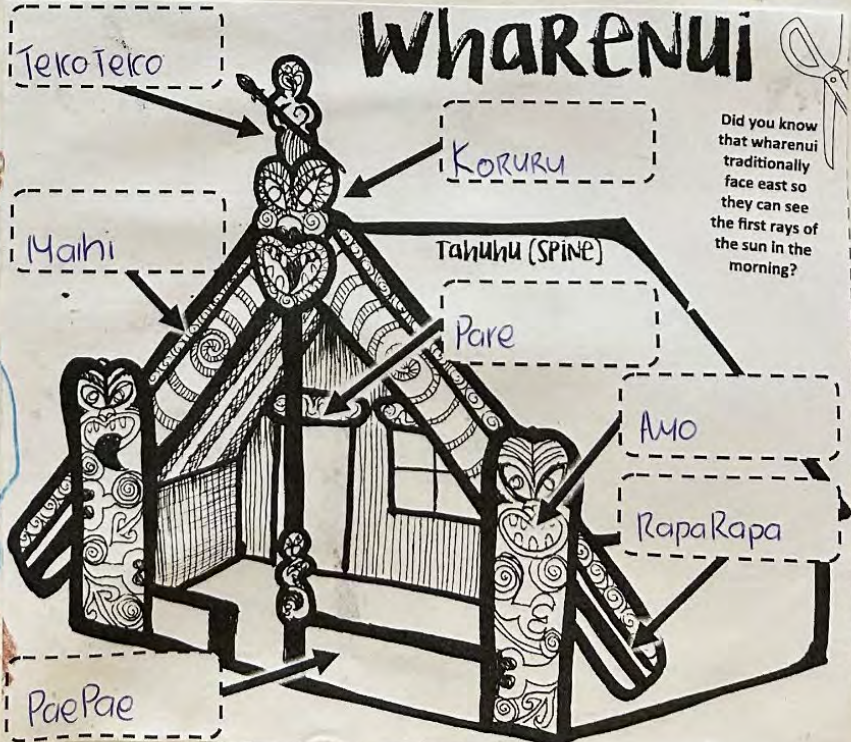 WhaRENui
TekoTeko
KORURU
Did you know
that wharenui
traditionally
face east so
they can see
the first rays of
the sun in the
morning?
Maihi
Tahuhu (SPINE)
Pare
AMO
RapaRapa
PaePae